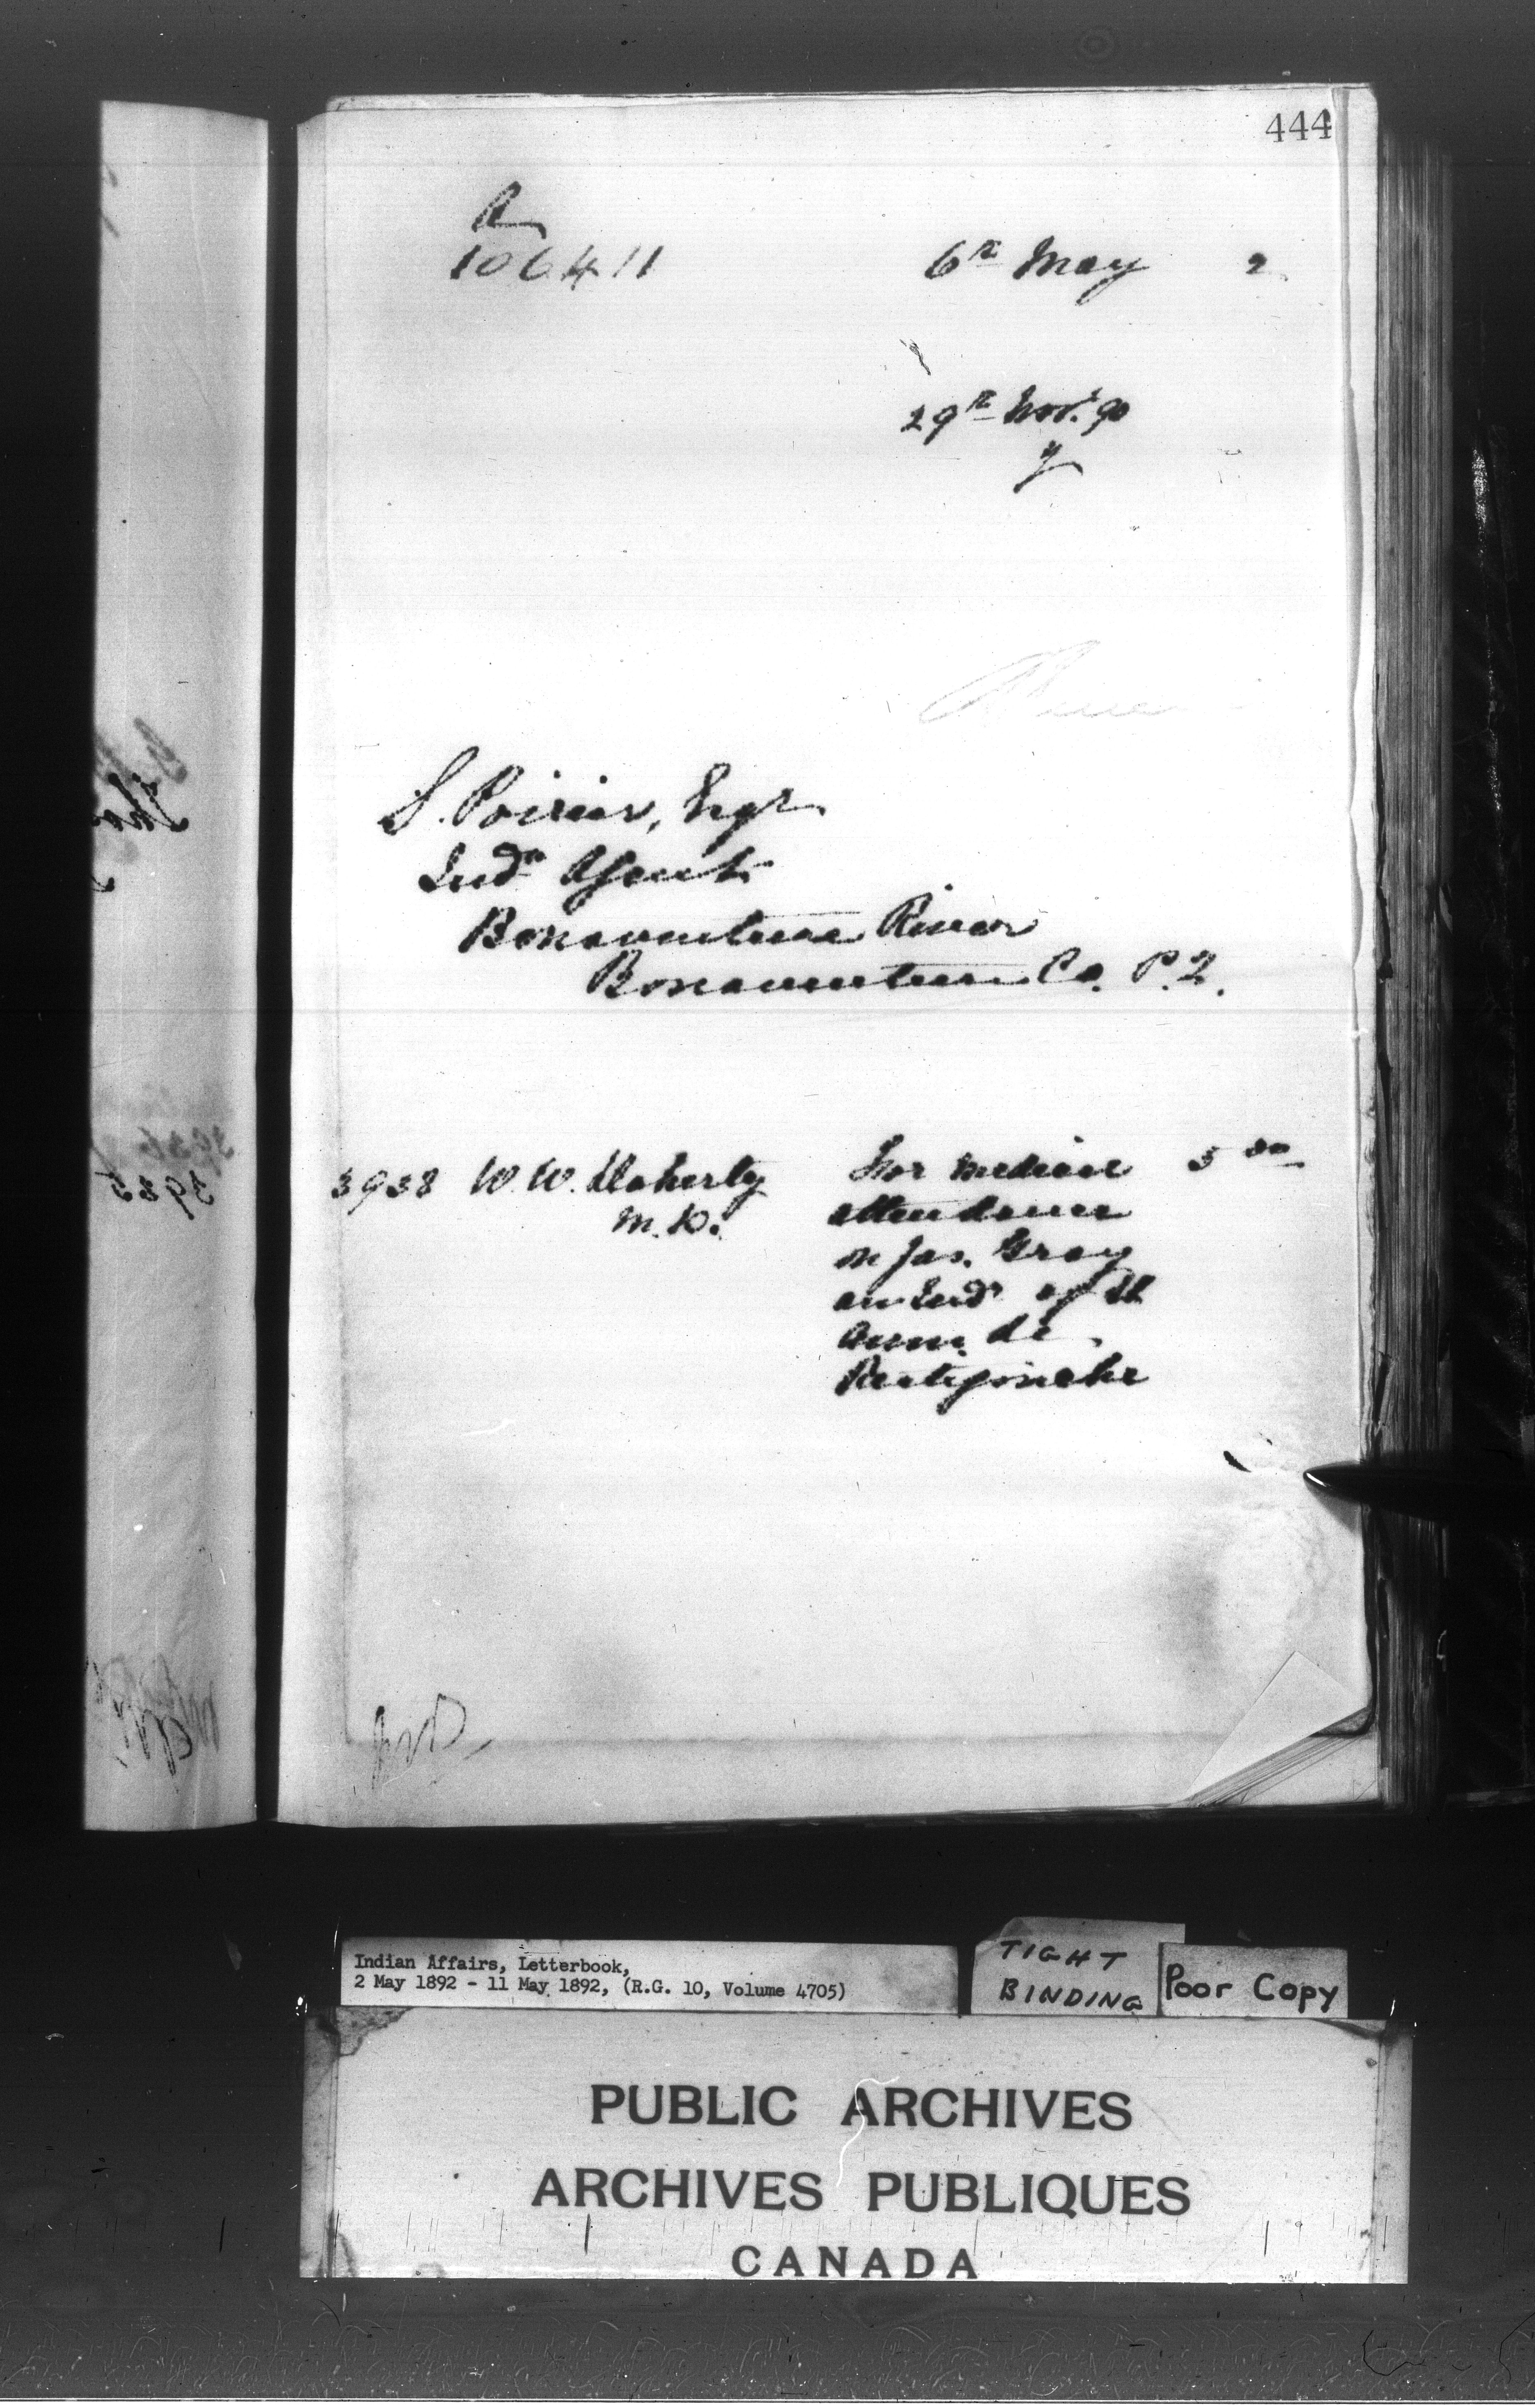 444
A
106411
6th May 2
29th Nov. 90
S. Poirier, Esqr
Indn Agent
Bonaventure River
Bonaventure Co. P.Q.
3938 W. W. Doherty For medical 5 00
M.D. attendance
on Jas. Gray
an Indn of St
Anne de
Restigouche
3935
Indian Affairs, Letterbook,
2 May 1892 - 11 May 1892, (R.G. 10, Volume 4705)
TIGHT
BINDING
Poor Copy
PUBLIC ARCHIVES
ARCHIVES PUBLIQUES
CANADA